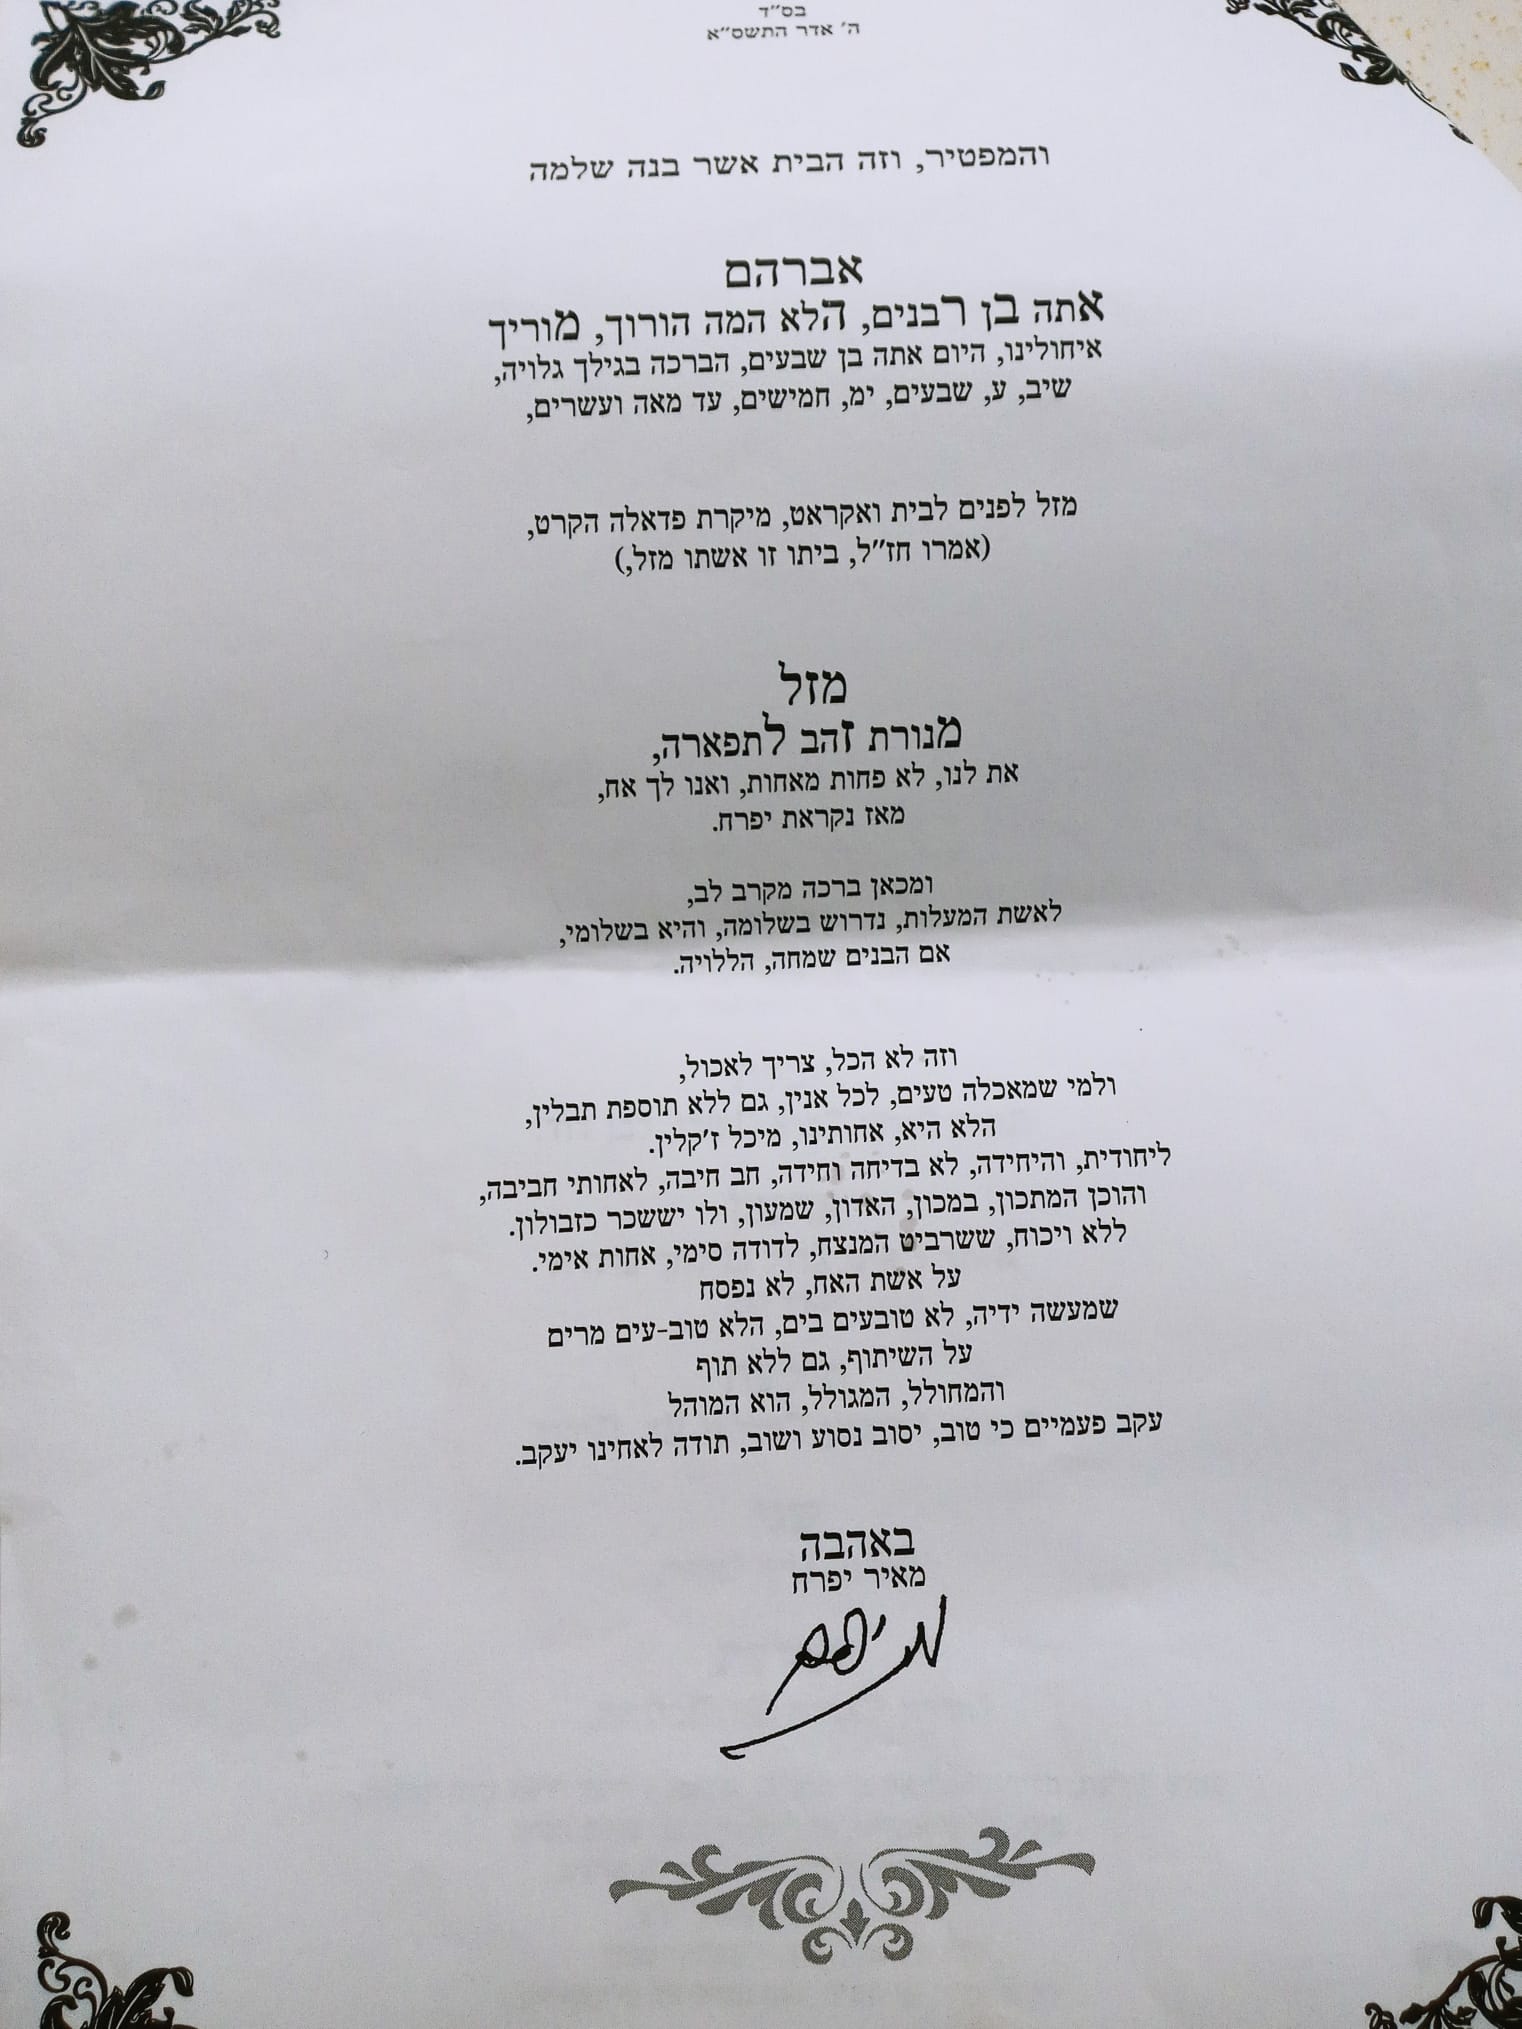 בס"ד
ה' אדר התשס"א
והמפטיר, וזה הבית אשר בנה שלמה
אברהם
אתה בן רבנים, הלא המה הורוך, מוריך
איחולינו, היום אתה בן שבעים, הברכה בגילך גלויה,
שיב, ע, שבעים, ימ, חמישים, עד מאה ועשרים,
מזל לפנים לבית ואקראט, מיקרת פדאלה הקרט,
(אמרו חז"ל, ביתו זו אשתו מזל,)
מזל
מנורת זהב לתפארה,
את לנו, לא פחות מאחות, ואנו לך אח,
מאז נקראת יפרח.
ומכאן ברכה מקרב לב,
לאשת המעלות, נדרוש בשלומה, והיא בשלומי,
אם הבנים שמחה, הללויה.
וזה לא הכל, צריך לאכול,
ולמי שמאכלה טעים, לכל אנין, גם ללא תוספת תבלין,
הלא היא, אחותינו, מיכל ז'קלין.
ליחודית, והיחידה, לא בדיחה וחידה, חב חיבה, לאחותי חביבה,
והוכן המתכון, במכון, האדון, שמעון, ולו יששכר כזבולון.
ללא ויכוח, ששרביט המנצח, לדודה סימי, אחות אימי.
על אשת האח, לא נפסח
שמעשה ידיה, לא טובעים בים, הלא טוב-עים מרים
על השיתוף, גם ללא תוף
והמחולל, המגולל, הוא המוהל
עקב פעמיים כי טוב, יסוב נסוע ושוב, תודה לאחינו יעקב.
באהבה
מאיר יפרח